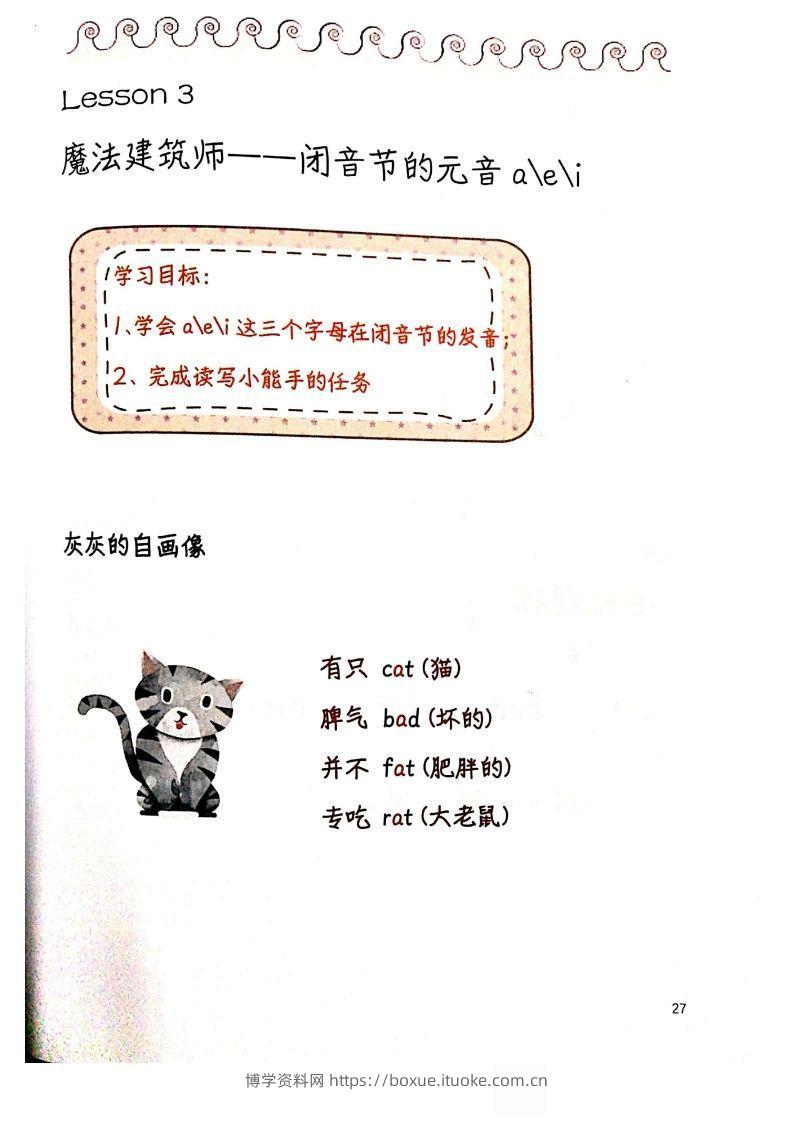 Lesson 3
魔法建筑师——闭音节的元音 a\e\i
学习目标:
1、学会 a\e\i 这三个字母在闭音节的发音;
2、完成读写小能手的任务
灰灰的自画像
有只 cat (猫)
脾气 bad (坏的)
并不 fat (肥胖的)
专吃 rat (大老鼠)
27
博学资料网 https://boxue.ituoke.com.cn